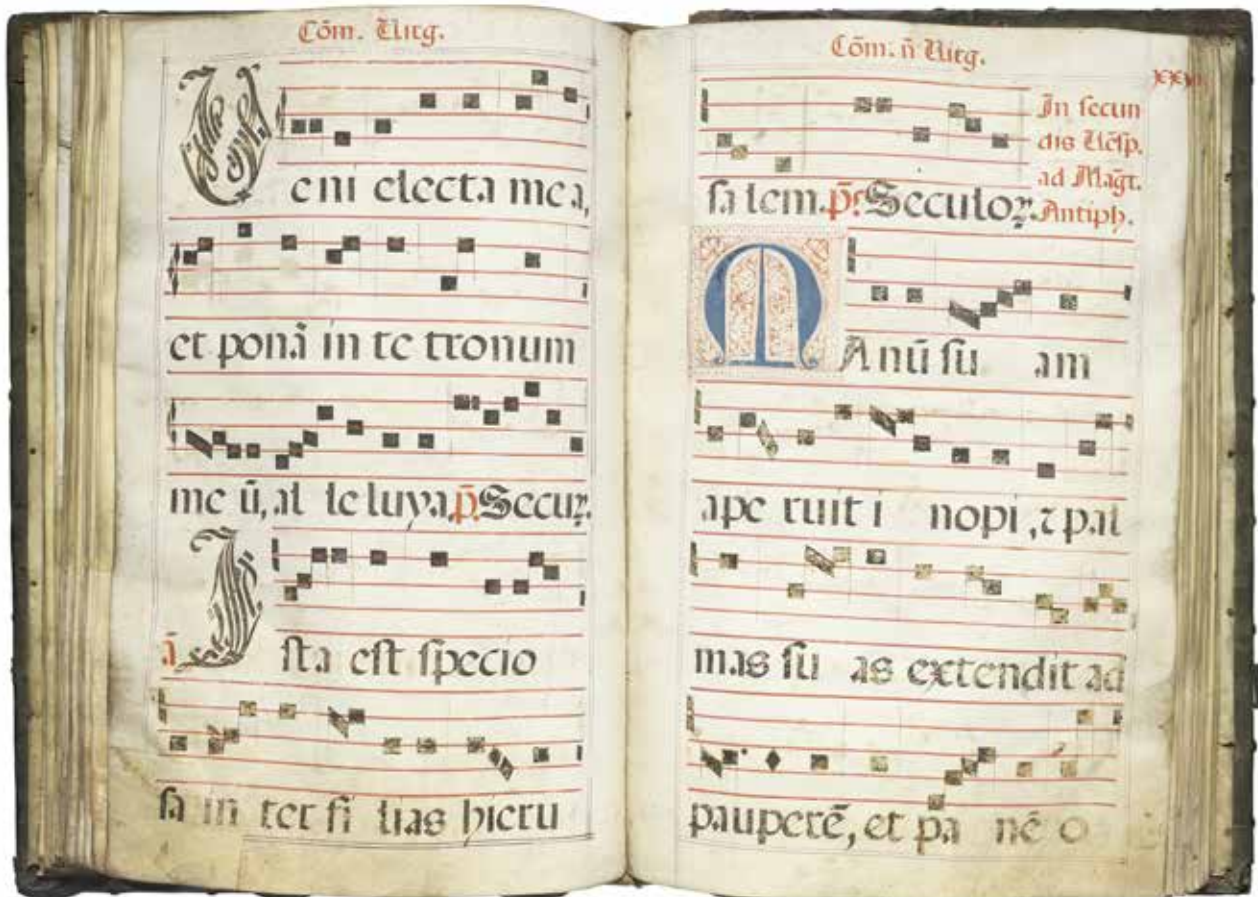 Cōm. Uirg.
Veni electa mea,
et ponā in te tronum
me ū, al le luya, p̄. Secuꝝ.
ā Ista est specio
sa in ter fi lias hieru
Cōm. ñ Uirg.
In secun
dis Uesp.
ad Mag̃t.
Antiph.
sa lem. p̄. Seculoꝝ.
MAnū su am
ape ruit i nopi, ⁊ pal
mas su as extendit ad
pauperē, et pa nē o